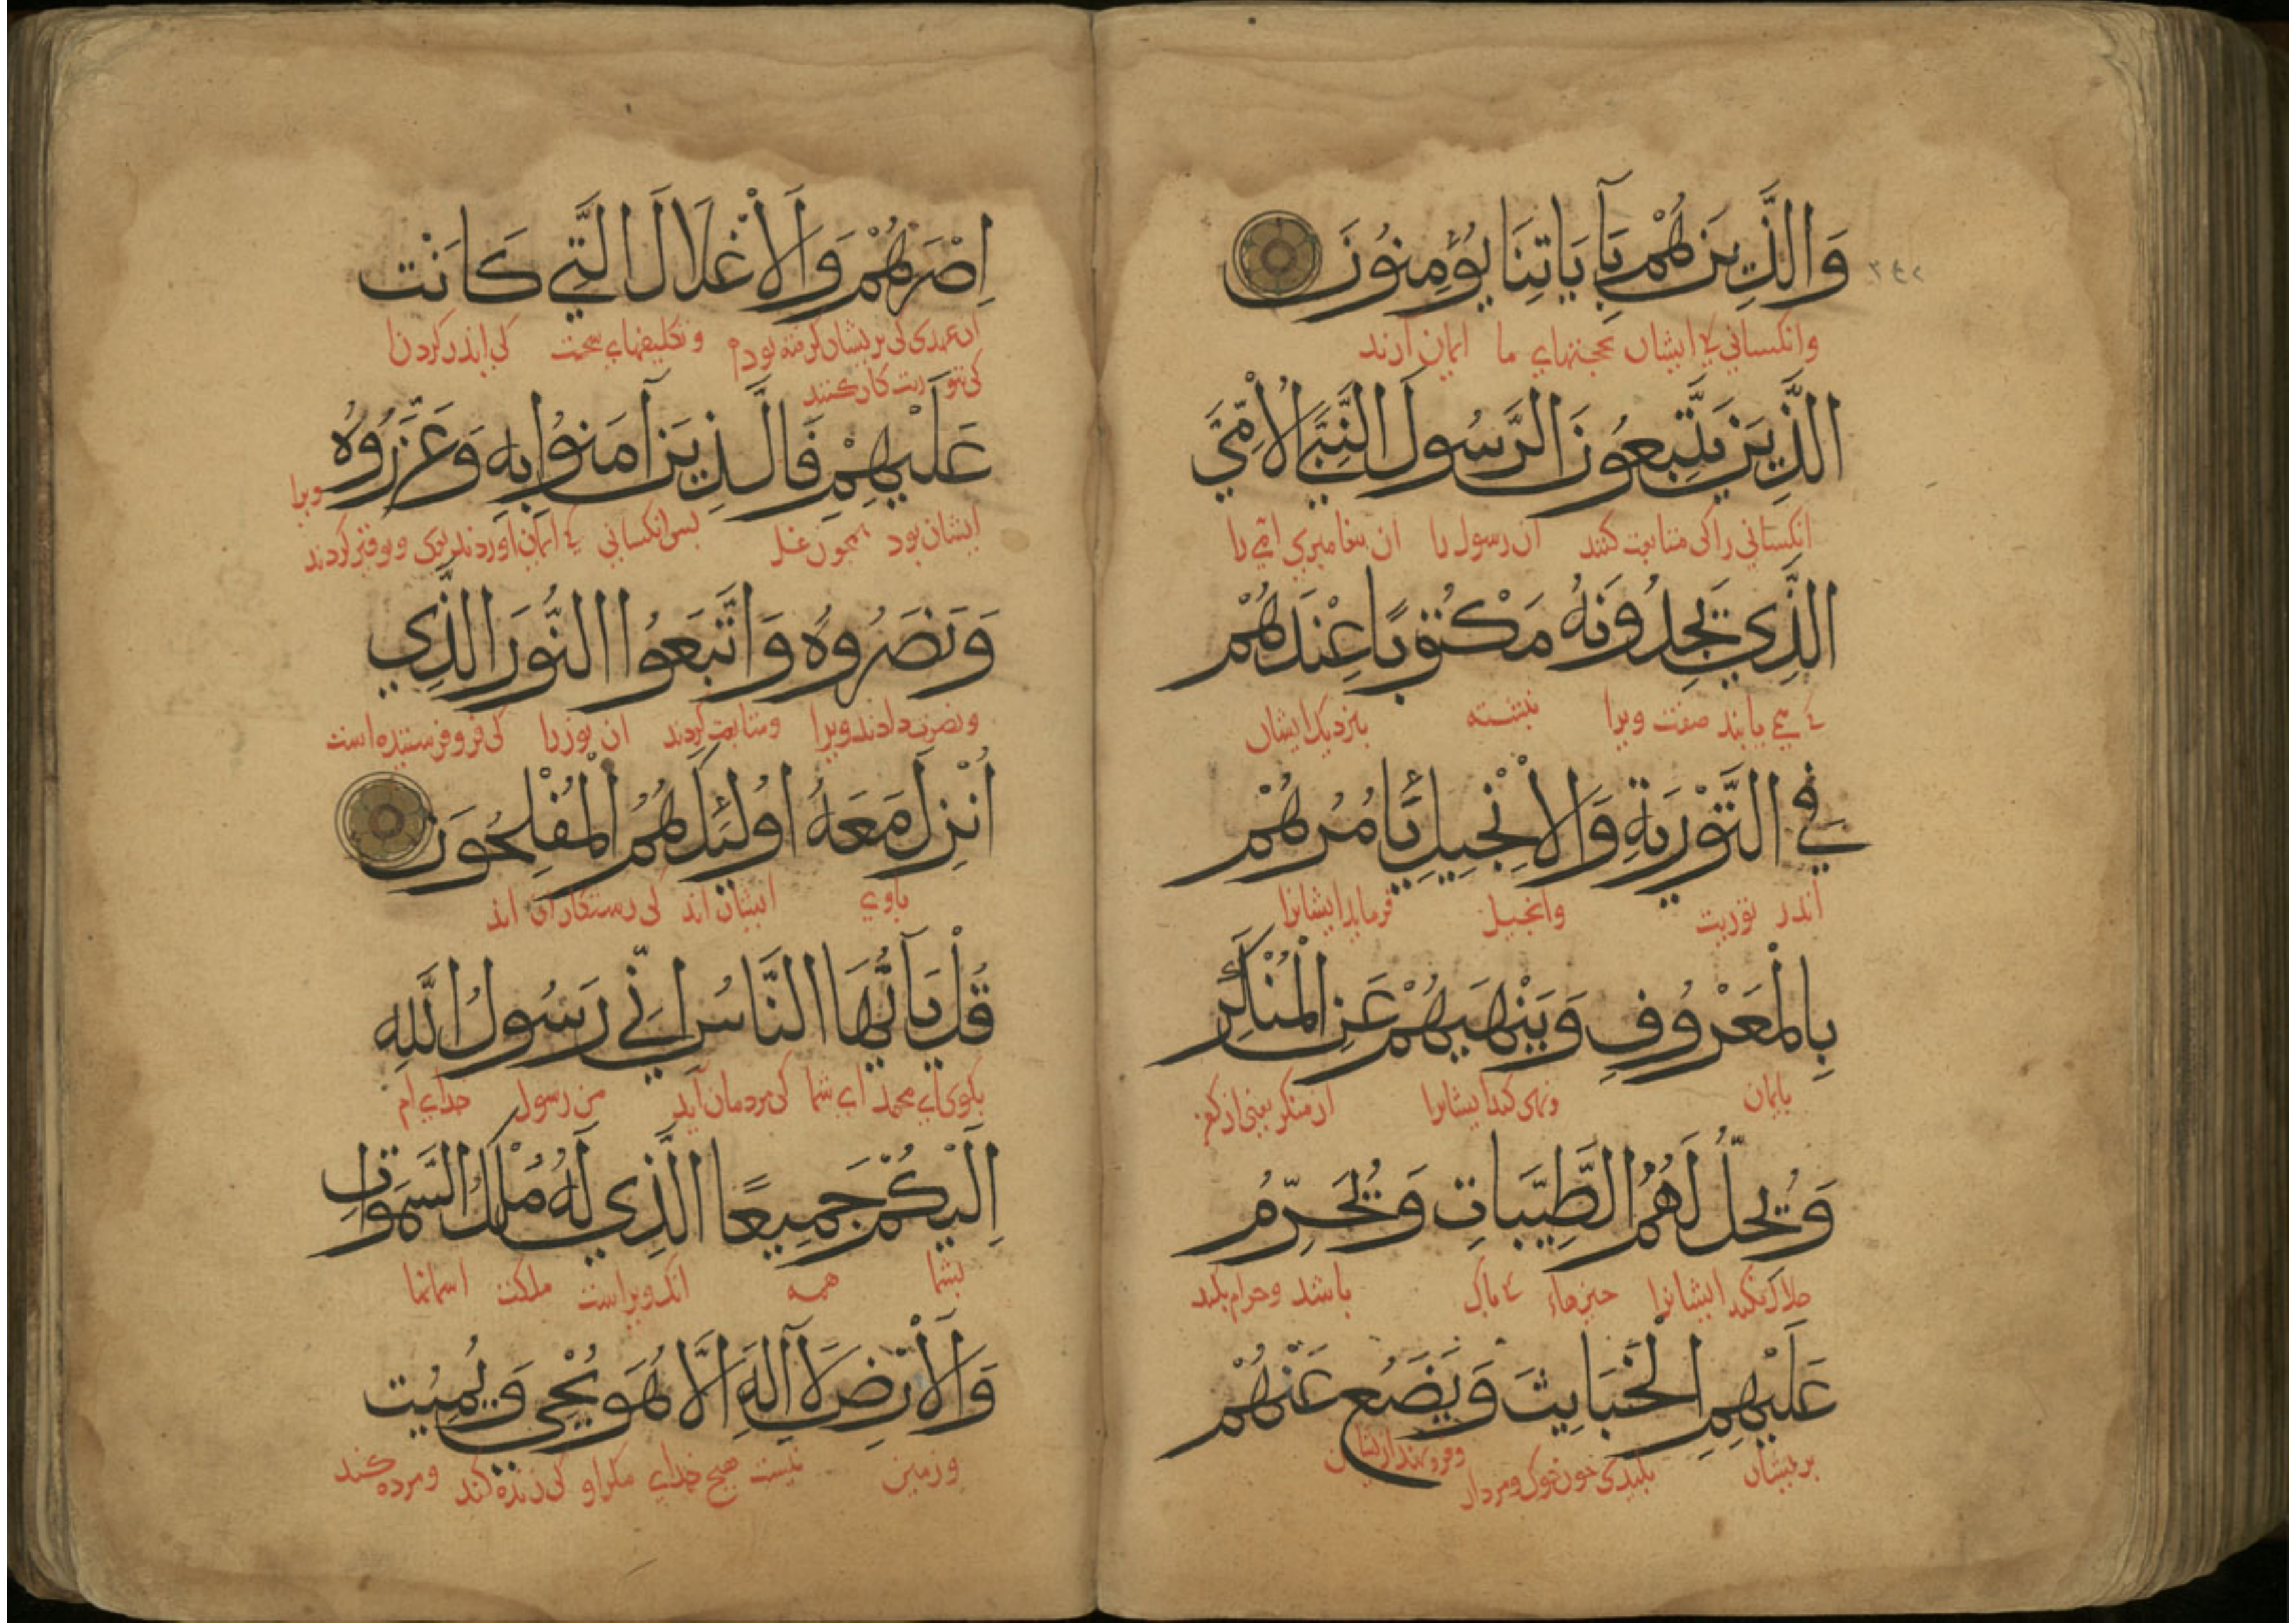 وَالَّذِينَ هُمْ بِآيَاتِنَا يُؤْمِنُونَ
وانکسانی کی ایشان بحجتهاي ما ایمان آرند
الَّذِينَ يَتَّبِعُونَ الرَّسُولَ النَّبِيَّ الْاُمِّيَّ
انکسانی را کی متابعت کنند ان رسول را ان بیغامبری امّی را
الَّذِي يَجِدُونَهُ مَكْتُوبًا عِنْدَهُمْ
کی می یابند صفت ویرا نبشته بنزدیک ایشان
فِي التَّوْرٰيةِ وَالْاِنْجِيلِ يَأمُرُهُمْ
اندر توریت وانجیل فرماید ایشانرا
بِالْمَعْرُوفِ وَيَنْهٰيهُمْ عَنِ الْمُنْكَرِ
بایمان ونهی کند ایشانرا از منکر یعنی از کفر
وَيُحِلُّ لَهُمُ الطَّيِّبَاتِ وَيُحَرِّمُ
حلال کند ایشانرا چیزهاء کی باک باشد وحرام بکند
عَلَيْهِمِ الْخَبَايِثَ وَيَضَعُ عَنْهُمْ
بریشان بلیدی خون خوک ومردار وفرو نهند ازیشان
اِصْرَهُمْ وَالْاَغْلَالَ الَّتِي كَانَتْ
ان عهدی کی بریشان کرفته بودم وتکلیفهاي سخت کی اندر کردن
کی بتوریت کار کنند
عَلَيْهِمْ فَالَّذِينَ آمَنُوا بِهِ وَعَزَّرُوهُ
ایشان بود همجون غل بس انکسانی کی ایمان اوردند بوی وتوقیر کردند ویرا
وَنَصَرُوهُ وَاتَّبَعُوا النُّورَ الَّذِي
ونصرت دادند ویرا ومتابعت کردند ان نور را کی فرو فرستیده است
اُنْزِلَ مَعَهُ اُولٰئِكَ هُمُ الْمُفْلِحُونَ
باوي ایشان اند کی رستکاران اند
قُلْ يَآ اَيُّهَا النَّاسُ اِنِّي رَسُولُ اللّٰهِ
بکوی اي محمد اي شما کی مردمان اید من رسول خداي ام
اِلَيْكُمْ جَمِيعًا الَّذِي لَهُ مُلْكُ السَّمٰوَاتِ
بشما همه انک ویراست ملکت اسمانها
وَالْاَرْضِ لَآ اِلٰهَ اِلَّا هُوَ يُحْيِي وَيُمِيتُ
وزمین نیست هیچ خداي مکر او کی زنده کند ومرده کند